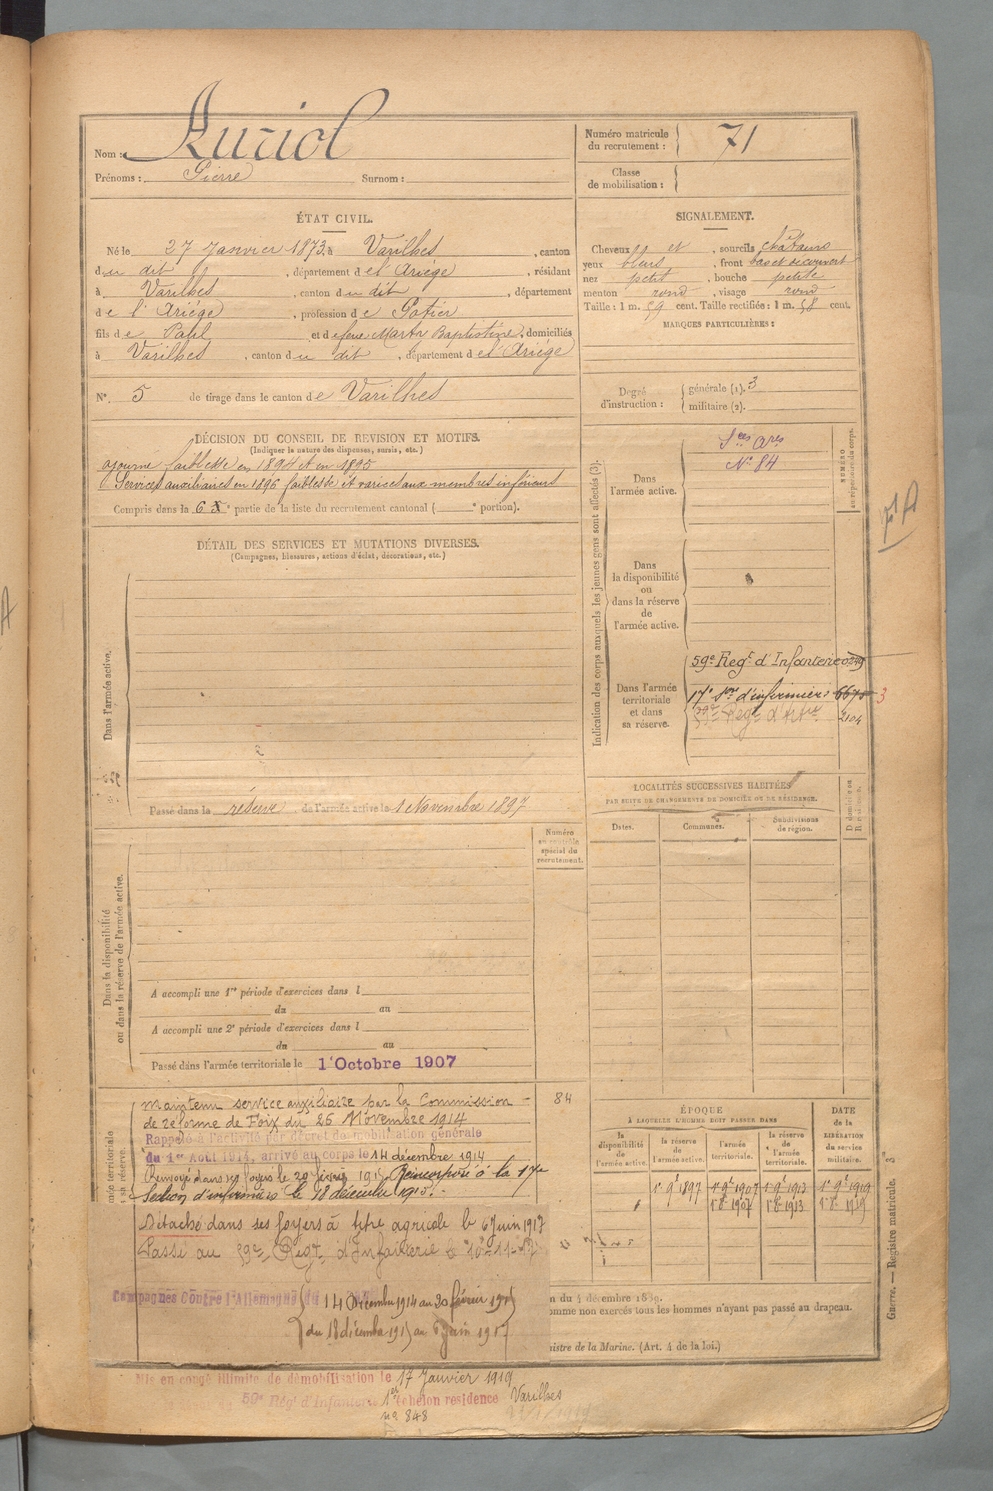 Nom : Auriol
Prénoms : Pierre Surnom :
Numéro matricule du recrutement : 71
Classe de mobilisation :
ÉTAT CIVIL.
Né le 27 Janvier 1873 à Varilhes, canton
du dit, département de l'Ariège, résidant
à Varilhes, canton du dit, département
de l'Ariége, profession de Potier
fils de Paul et de feue Marty Baptistine, domiciliés
à Varilhes, canton du dit, département de l'Ariége
N°. 5 de tirage dans le canton de Varilhes
SIGNALEMENT.
Cheveux et, sourcils châtains
yeux bleus, front bas et découvert
nez petit, bouche petite
menton rond, visage rond
Taille : 1 m. 59 cent. Taille rectifiée : 1 m. 58 cent.
MARQUES PARTICULIÈRES :
Degré d'instruction : générale (1). 3
militaire (2).
DÉCISION DU CONSEIL DE REVISION ET MOTIFS.
(Indiquer la nature des dispenses, sursis, etc.)
ajourné faiblesse en 1894 et en 1895
Services auxiliaires en 1896 faiblesse et varices aux membres inférieurs
Compris dans la 6e partie de la liste du recrutement cantonal ( e portion).
Indication des corps auxquels les jeunes gens sont affectés (3).
NUMÉRO au répertoire du corps.
Dans l'armée active.
Sces Ares
N° 84
Dans la disponibilité ou dans la réserve de l'armée active.
Dans l'armée territoriale et dans sa réserve.
59e Regt d'Infanterie
17e Son d'infirmiers 6675 3
59e Regt d'Inftie 2104
71 A
DÉTAIL DES SERVICES ET MUTATIONS DIVERSES.
(Campagnes, blessures, actions d'éclat, décorations, etc.)
Dans l'armée active.
Passé dans la réserve de l'armée active le 1 Novembre 1897
Numéro au contrôle spécial du recrutement.
LOCALITÉS SUCCESSIVES HABITÉES
PAR SUITE DE CHANGEMENTS DE DOMICILE OU DE RÉSIDENCE.
Dates. Communes. Subdivisions de région.
Dans la disponibilité ou dans la réserve de l'armée active.
A accompli une 1re période d'exercices dans l
du au
A accompli une 2e période d'exercices dans l
du au
Passé dans l'armée territoriale le 1 Octobre 1907
84
maintenu service auxiliaire par la Commission
de réforme de Foix du 26 Novembre 1914
Rappelé à l'activité par décret de mobilisation générale
du 1er Août 1914, arrivé au corps le 14 décembre 1914
Renvoyé dans ses foyers le 20 février 1915 Réincorporé à la 17e
Section d'infirmiers le 18 décembre 1915.
Détaché dans ses foyers à titre agricole le 6 Juin 1917
Passé au 59e Regt d'Infanterie le 10-11-17
Campagnes Contre l'Allemagne du 14 Décembre 1914 au 20 février 1915
du 18 décembre 1915 au 6 Juin 1917
Mis en congé illimité de démobilisation le 17 Janvier 1919
59e Régt d'Infanterie 1er échelon residence Varilhes
no 848
ÉPOQUE
À LAQUELLE L'HOMME DOIT PASSER DANS
la disponibilité de l'armée active.
la réserve de l'armée active.
l'armée territoriale.
la réserve de l'armée territoriale.
DATE de la LIBÉRATION du service militaire.
1 9e 1897 1 9e 1907 1 9e 1913 1 9e 1919
1 8e 1907 1 8e 1913 1 8e 1919
n du 4 décembre 1889.
omme non exercés tous les hommes n'ayant pas passé au drapeau.
nistre de la Marine. (Art. 4 de la loi.)
GUERRE. — Registre matricule.